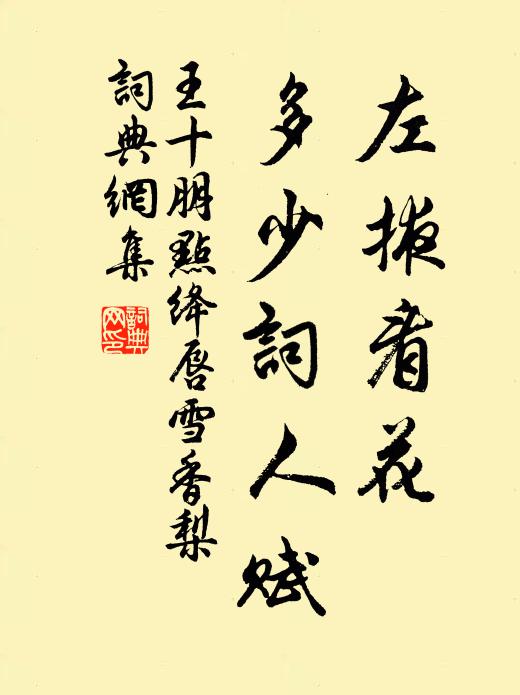 左掖看花
多少詞人賦
王十朋點绛唇雪香梨
詞典網集
詞典
网印